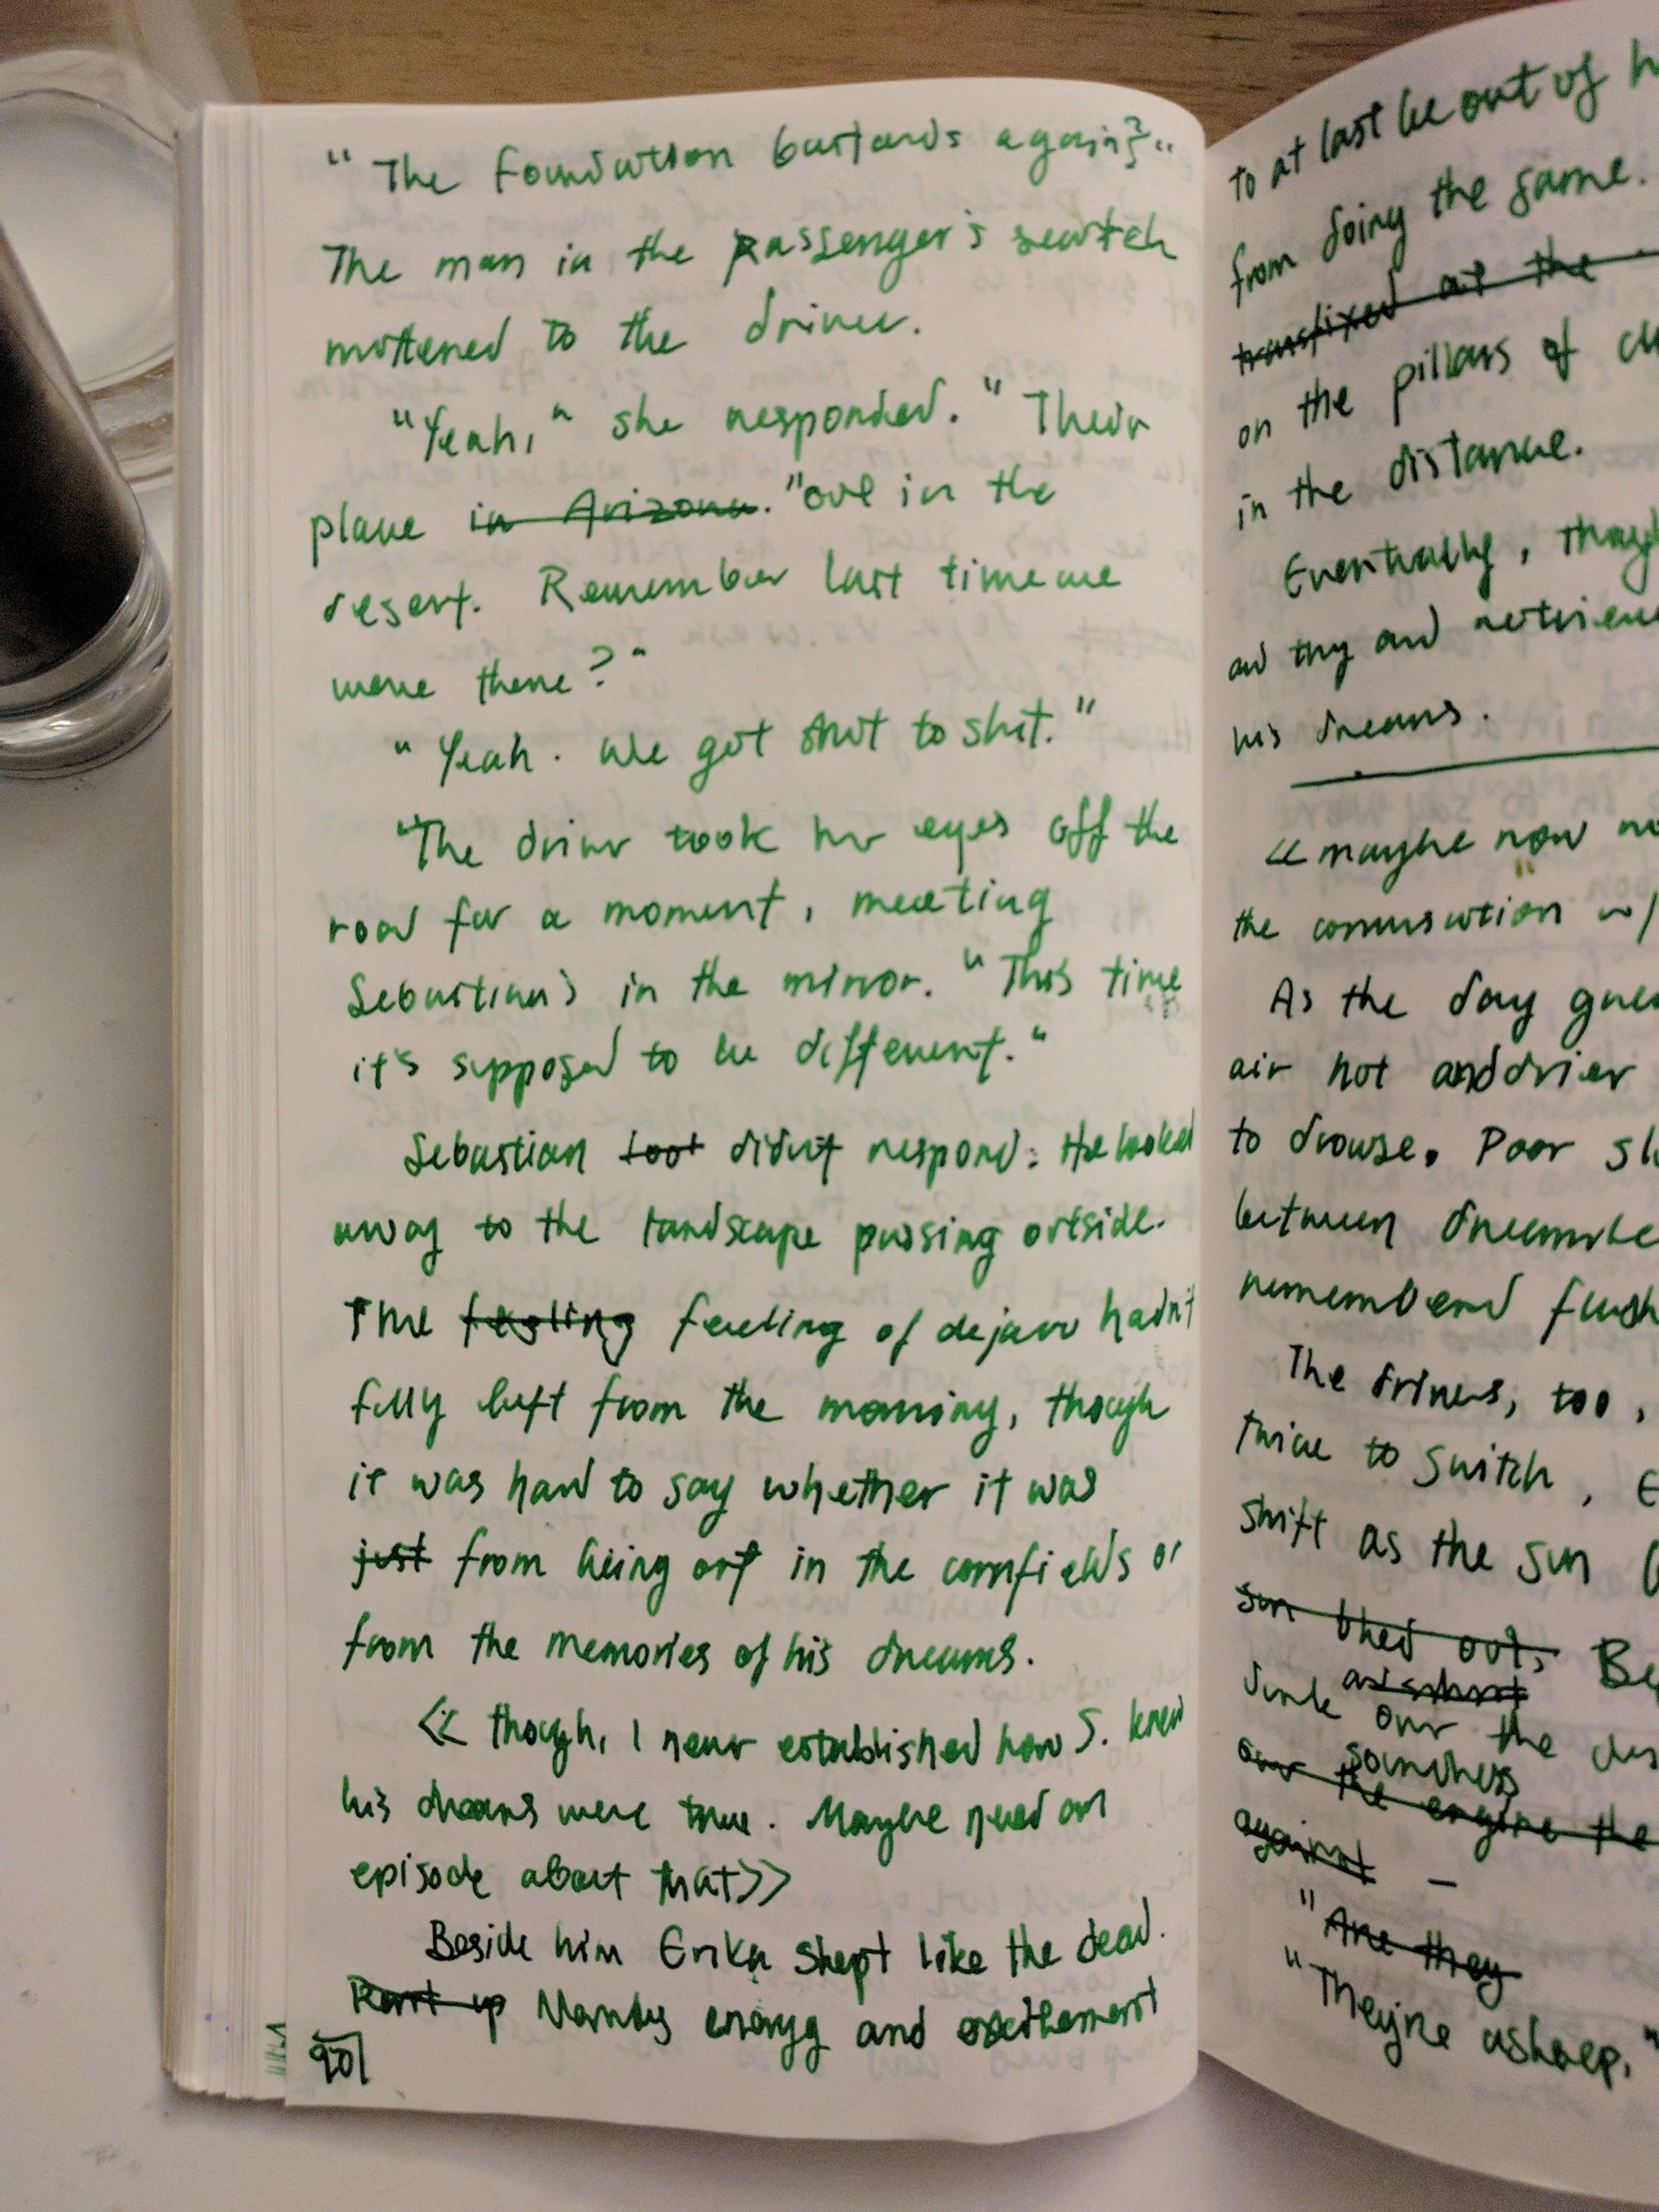 "The Foundation bastards again?"
The man in the passenger's seat
mottened to the driver.
"Yeah," she responded. "Their
place in Arizona. "out in the
desert. Remember last time we
were there?"
"Yeah. We got shot to shit."
"The driver took her eyes off the
road for a moment, meeting
Sebastian's in the mirror. "This time
it's supposed to be different."
Sebastian too didn't respond. He looked
away to the landscape passing outside.
The feeling feeling of dejavu hadn't
fully left from the morning, though
it was hard to say whether it was
just from being out in the cornfields or
from the memories of his dreams.
<< though, I never established how S. knew
his dreams were true. Maybe need an
episode about that>>
Beside him Erika slept like the dead.
energy and excitement
90
to at last be out of
from doing the same.
transfixed at the
on the pillars of
in the distance.
Eventually, though
and try and retrieve
his dreams.
<< maybe now
the conversation w/
As the day
air hot and drier
to drowse. Poor
between
remembered
The drivers, too,
twice to switch,
shift as the sun
sun bled out,
over the
soundless
over the engine the
against
"Are they
"They're asleep."